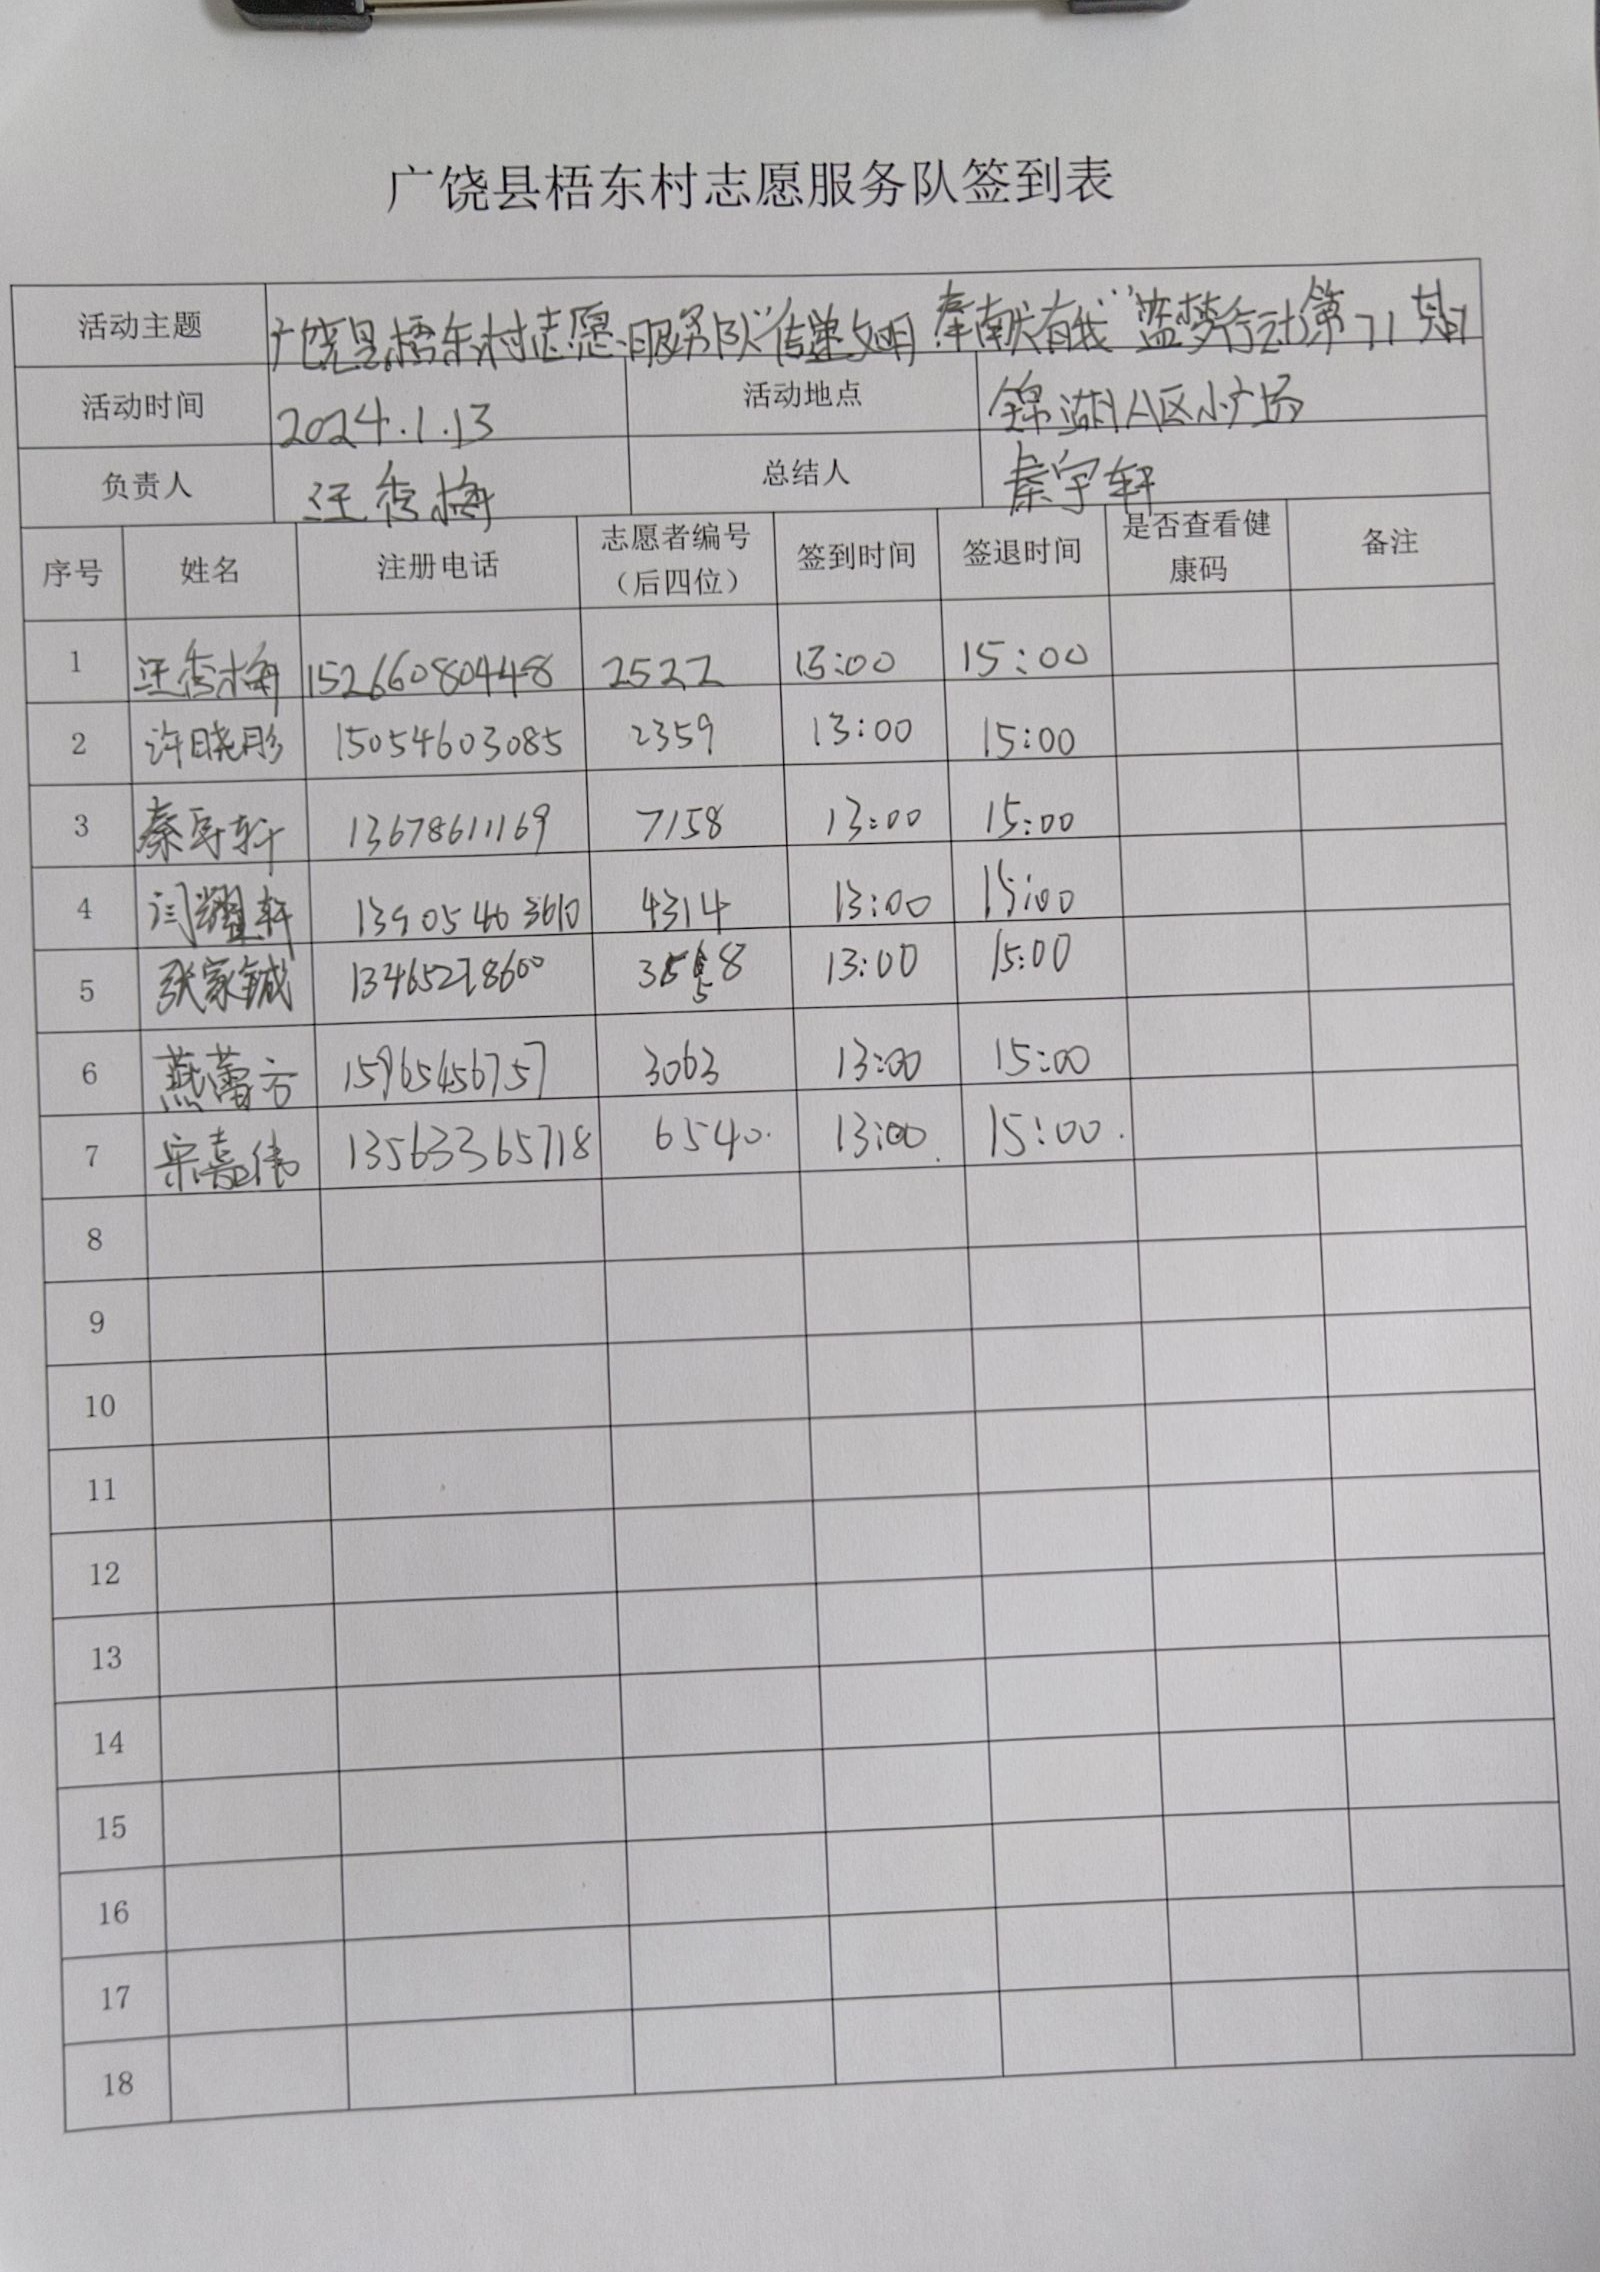 广饶县梧东村志愿服务队签到表
活动主题 广饶县梧东村志愿服务队“传递文明 奉献有我”蓝梦行动第71期
活动时间 2024.1.13 活动地点 锦湖A区小广场
负责人 汪秀梅 总结人 秦宇轩
序号 姓名 注册电话 志愿者编号（后四位） 签到时间 签退时间 是否查看健康码 备注
1 汪秀梅 152660804448 2522 13:00 15:00
2 许晓彤 15054603085 2359 13:00 15:00
3 秦宇轩 13678611169 7158 13:00 15:00
4 闫耀轩 13905463610 4314 13:00 15:00
5 张家铖 13:00 15:00
6 燕蕾方 15965456757 3063 13:00 15:00
7 宋嘉伟 13563365718 6540. 13:00. 15:00.
8
9
10
11
12
13
14
15
16
17
18